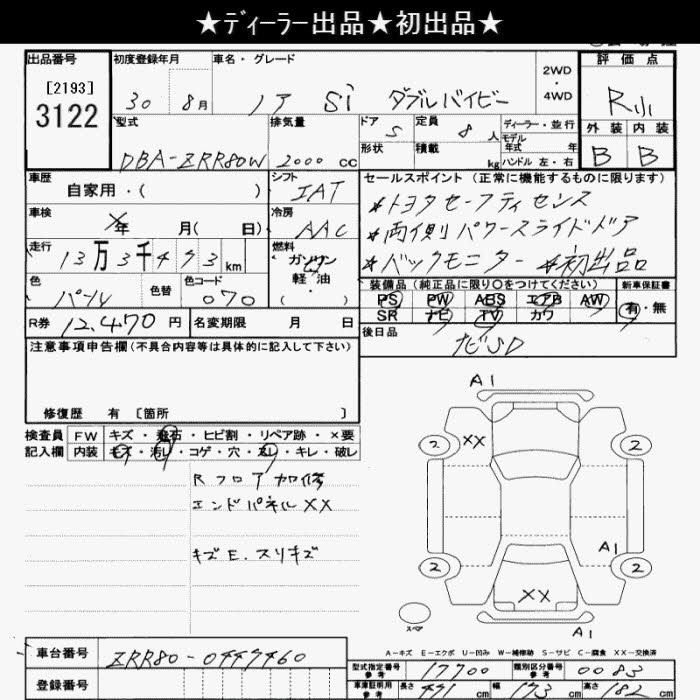 ★ディーラー出品★初出品★
出品番号
[2193]
3122
初度登録年月
30 8月
車名・グレード
ノア Si ダブルバイビー
2WD
・
4WD
評価点
R小
外装 内装
B B
型式
DBA-ZRR80W
排気量
2000 CC
ドア
5
定員
8 人
形状
積載
kg
ディーラー・並行
モデル
年式 年
ハンドル 左・右
車歴
自家用・( )
シフト
IAT
車検
年 月( 日)
冷房
AAC
走行
13万3千493km
燃料
ガソリン
軽油
・( )
色
パール
色替
色コード
070
R券 12,470 円
名変期限 月 日
セールスポイント(正常に機能するものに限ります)
★トヨタセーフティセンス
★両側パワースライドドア
★バックモニター ★初出品
装備品(純正品に限り〇をつけてください)
PS PW ABS エアB AW
SR ナビ TV カワ
新車保証書
有・無
後日品
ナビSD
注意事項申告欄(不具合内容等は具体的に記入して下さい)
修復歴 有 〔箇所 〕
検査員
記入欄
FW キズ・飛石・ヒビ割・リペア跡・×要
内装 キズ・汚れ・コゲ・穴・スレ・キレ・破レ
Rフロア加修
エンドパネルXX
キズE.スリキズ
A1
2 XX 2
A1
2 2
XX
スペア
A1
A-キズ E-エクボ U-凹み W-補修跡 S-サビ C-腐食 XX-交換済
車台番号 ZRR80-0447460
登録番号
型式指定番号
参考
17700
類別区分番号
参考
0083
車庫証明用
参考
長さ 471 cm
幅 173 cm
高さ 182 cm